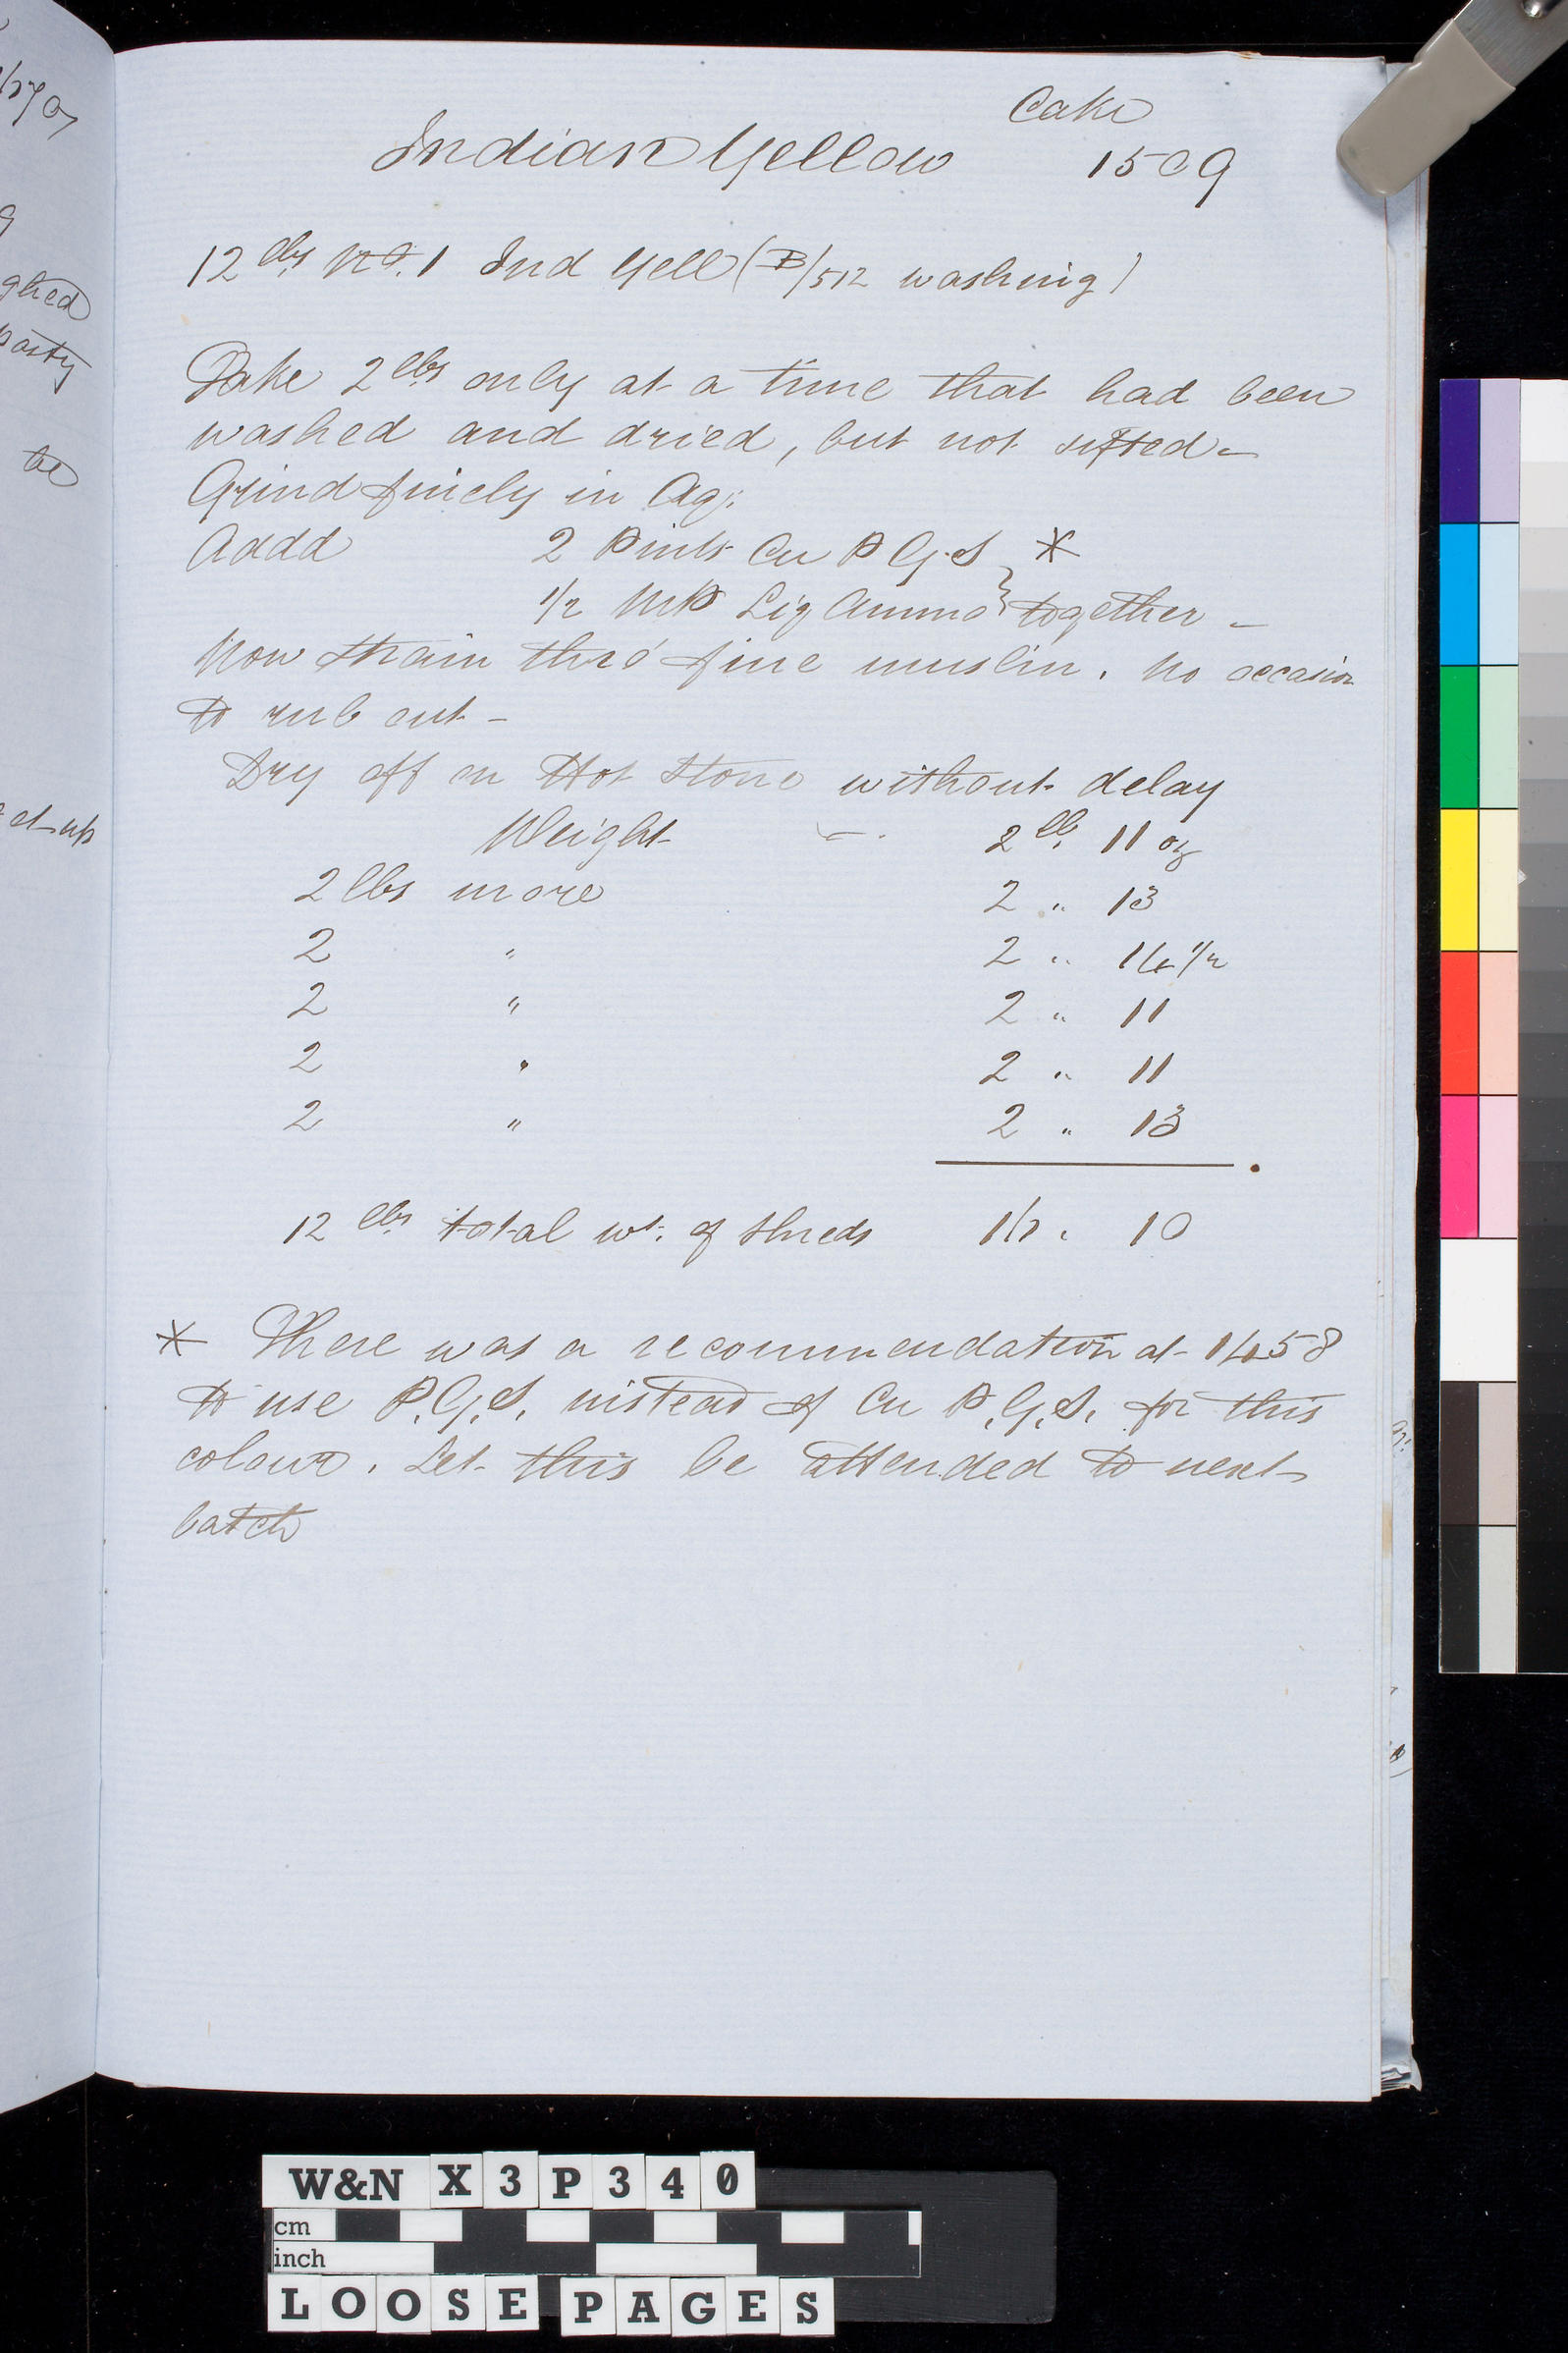 Cake
Indian Yellow 1509
12 lbs No. 1 Ind Yell (B/512 washing)
Take 2 lbs only at a time that had been
washed and dried, but not sifted -
Grind finely in Aq:
Addd 2 Pints Cu P G S *
1/2 MP Liq Ammo } together -
Now strain thro' fine muslin. No occasion
to rub out -
Dry off on Hot Stone without delay
Weight - . 2 lb. 11 oz
2 lbs more 2 " 13
2 " 2 " 14 1/2
2 " 2 " 11
2 " 2 " 11
2 " 2 " 13
12 lbs total wt. of shreds 17 " 10
* There was a recommendation at 1458
to use P.G.S. instead of Cu P.G.S. for this
colour. Let this be attended to next
batch
ghed
party
be
et up
W&N X3P340
cm
inch
LOOSE PAGES